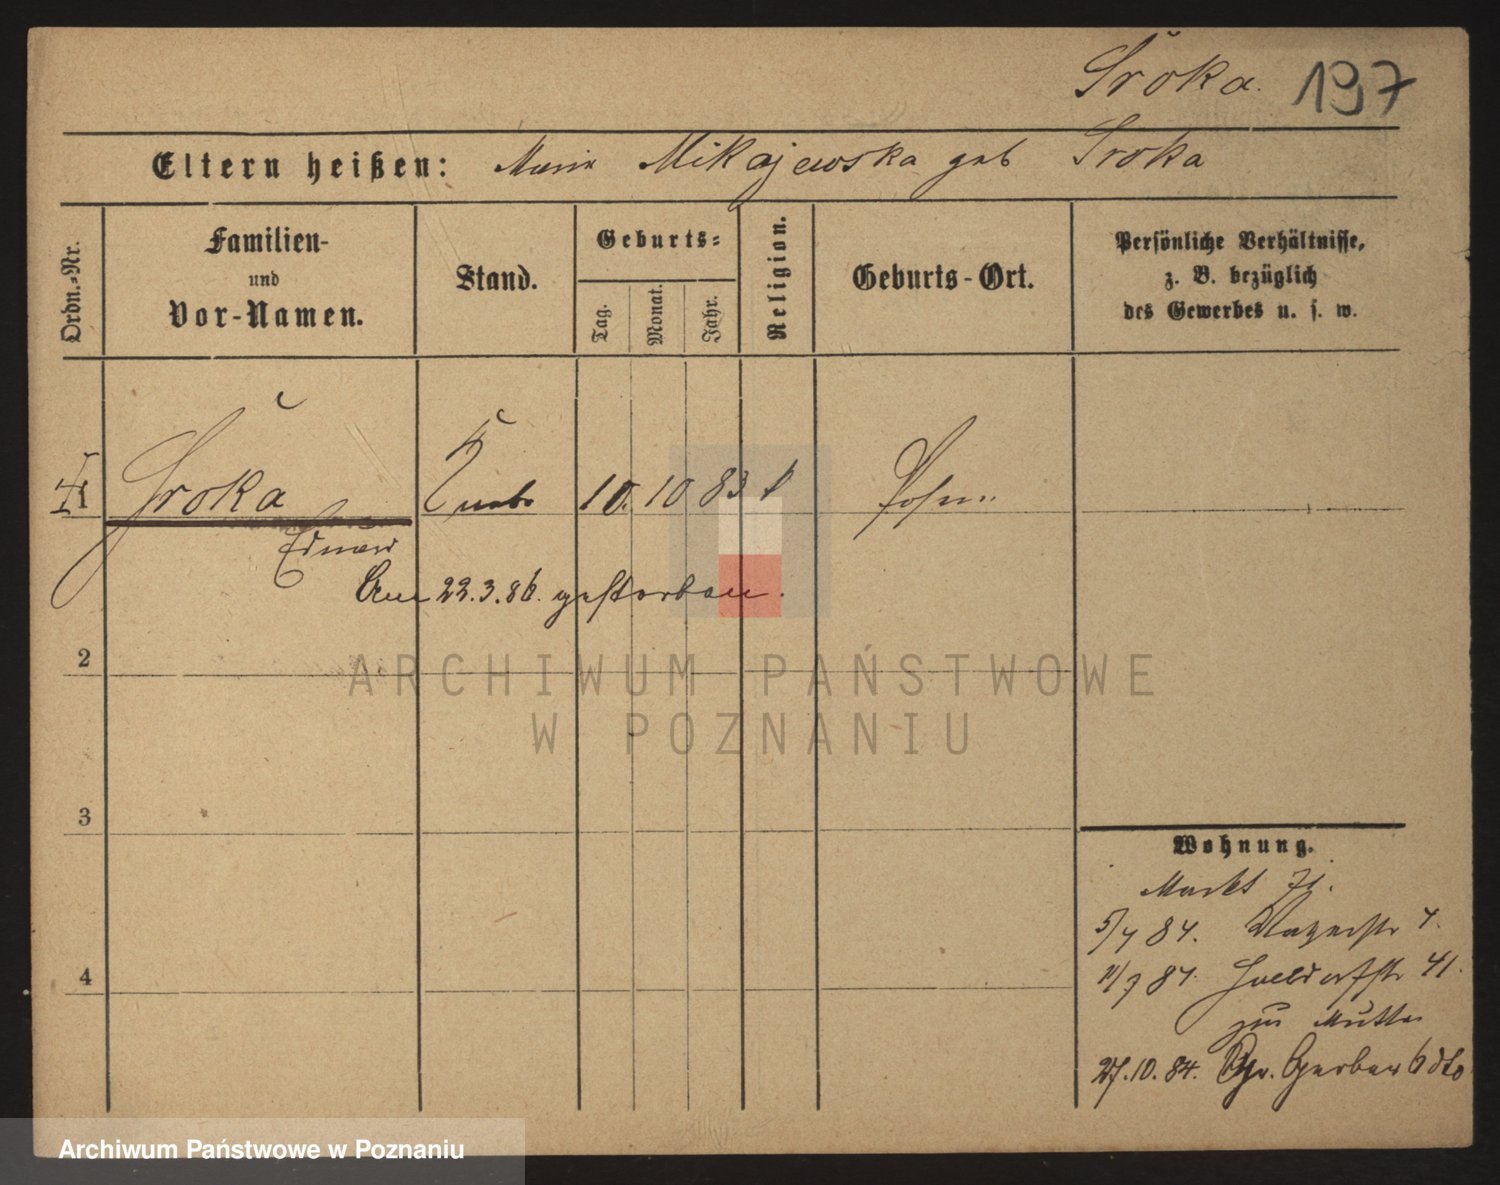 Sroka. 197
Eltern heißen: Maria Mikajewska geb Sroka
Ordn.-Nr.
Familien-
und
Vor-Namen.
Stand.
Geburts-
Tag.
Monat.
Jahr.
Religion.
Geburts-Ort.
Persönliche Verhältnisse,
z. B. bezüglich
des Gewerbes u. s. w.
1 Sroka 10. 10 83 Posen
Eduard
Am 22.3.86. gestorben.
2
3
4
Wohnung.
Markt 71.
5/4 84. 4.
84. 41.
zur Mutter
27.10.84. Gr. Gerber 6 dto
ARCHIWUM PAŃSTWOWE
W POZNANIU
Archiwum Państwowe w Poznaniu